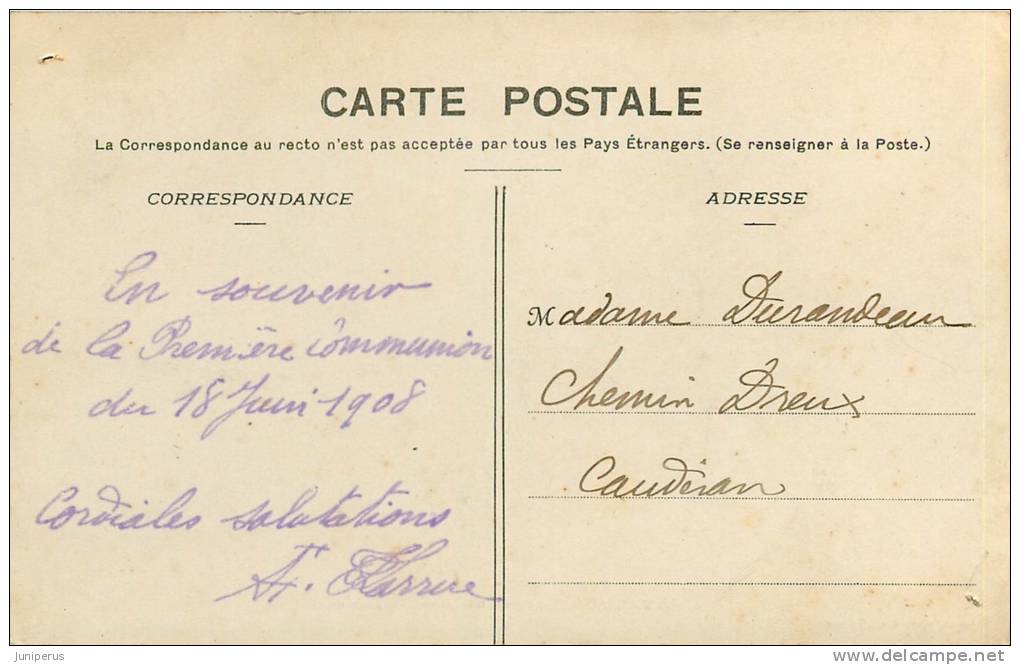 CARTE POSTALE
La Correspondance au recto n'est pas acceptée par tous les Pays Étrangers. (Se renseigner à la Poste.)
CORRESPONDANCE
En souvenir
de la Première Communion
du 18 Juin 1908
Cordiales salutations
ADRESSE
Madame Durandeau
Chemin Dreux
Caudéran
juniperus
www.delcampe.net